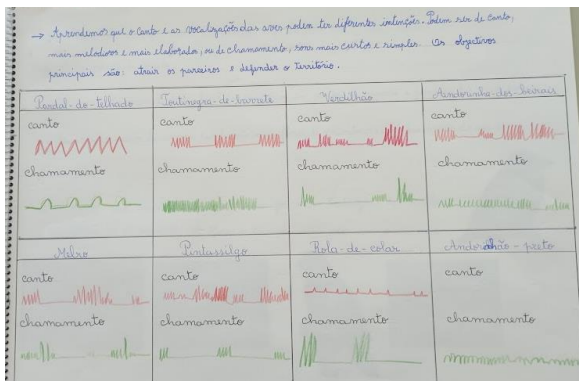 → Aprendemos que o canto e as vocalizações das aves podem ter diferentes intenções. Podem ser de canto,
mais melodioso e mais elaborado, ou de chamamento, sons mais curtos e simples. Os objetivos
principais são: atrair os parceiros e defender o território.
Pardal-do-telhado Toutinegra-de-barrete Verdilhão Andorinha-dos-beirais
canto canto canto canto
chamamento chamamento chamamento chamamento
Melro Pintassilgo Rola-de-colar Andorinhão-preto
canto canto canto canto
chamamento chamamento chamamento chamamento